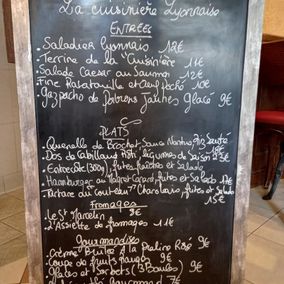 La cuisinière Lyonnaise
ENTRÉES
• Saladier Lyonnais 12€
• Terrine de la "Cuisinière" 11€
• Salade Caesar au Saumon 12€
• Fine Ratatouille et oeuf poché 10€
• Gazpacho de Poivrons jaunes glacé 9€
PLATS
• Quenelle de Brochet, Sauce Nantua, Riz Sauté
• Dos de Cabillaud Rôti, légumes de saison
• Entrecôte (300g), frites fraîches et Salade
• Hamburger au Magret Canard, frites et Salade
• Tartare au Couteau "Charolais", frites et Salade
15€
Fromages
Le St Marcelin 3€
L'Assiette de fromages 11€
Gourmandises
• Crème Brûlée à la praline Rose 9€
• Coupe de fruits rouges 9€
• Glaces et Sorbets (3 Boules) 9€
gourmand 7€